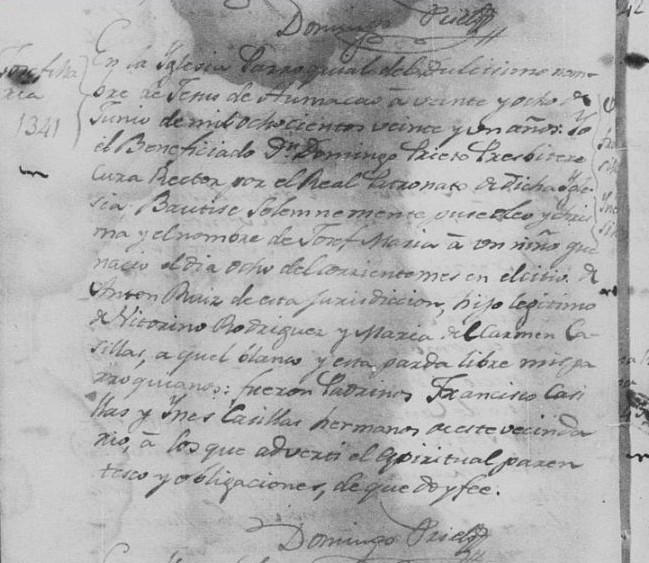 Domingo Prieto
Josef Ma
ria
1341
En la Yglesia Parroquial del Dulcisimo nom-
bre de Jesus de Humacao à veinte y ocho de
Junio de mil ochocientos veinte y un años: Yo
el Beneficiado Dn. Domingo Prieto Presbitero
Cura Rector por el Real Patronato de dicha Ygle-
sia, Bautise solemnemente puse oleo y chris-
ma y el nombre de Josef Maria à un niño que
nacio el dia ocho del corriente mes en el citio de
Anton Ruiz de esta jurisdiccion, hijo legitimo
de Vitorino Rodriguez y Maria del Carmen Ca-
sillas, a quel blanco y esta parda libre mis pa
rroquianos: fueron Padrinos Francisco Casi
llas y Ynes Casillas hermanos de este vecinda
rio, à los que adverti el Espiritual paren
tesco y obligaciones, de que doy fee.
Domingo Prieto